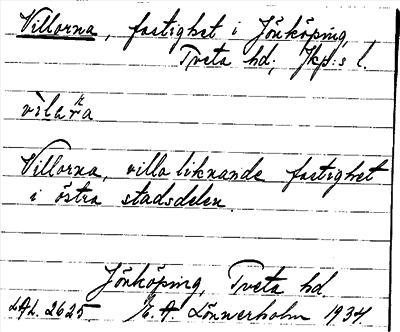 Villorna, fastighet i Jönköping,
Tveta hd, Jkp:s l.
vìlaṛa
Villorna, villa liknande fastighet
i östra stadsdelen.
Jönköping, Tveta hd
LAL. 2625. E. A. Lönnerholm 1934